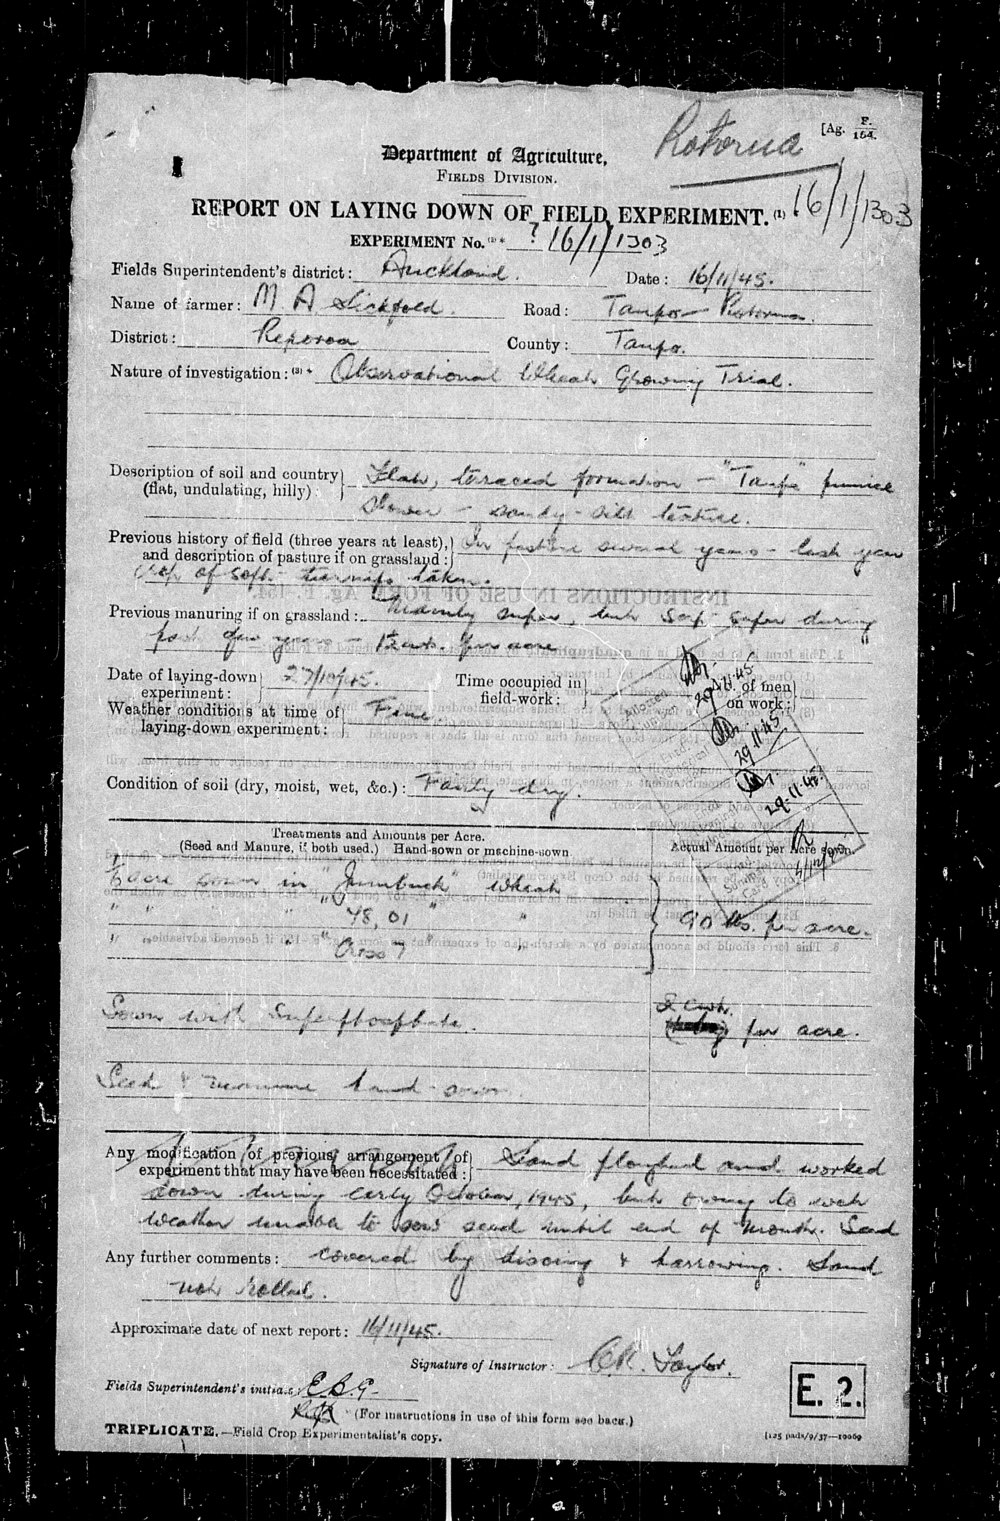 Rotorua
[Ag. F. 154.
Department of Agriculture,
FIELDS DIVISION.
REPORT ON LAYING DOWN OF FIELD EXPERIMENT. (1) 16/1/1303
EXPERIMENT No. (2)* ? 16/1/1303
Fields Superintendent's district: Auckland. Date: 16/11/45.
Name of farmer: M. A. Road: Taupo - Rotorua.
District: Reporoa County: Taupo.
Nature of investigation: (3)* Observational Wheat Growing Trial.
Description of soil and country (flat, undulating, hilly) } Flat, terraced formation - "Taupo" pumice
shower - sandy-silt texture.
Previous history of field (three years at least), and description of pasture if on grassland: } In pasture several years - last year
crop of soft turnips taken.
Previous manuring if on grassland: Mainly super, but Serp. super during
past few years - per acre
Date of laying-down experiment: } 27/10/45. Time occupied in field-work: } No. of men on work: }
Weather conditions at time of laying-down experiment: } Fine
29/11/45
29.11.45
29.11.45
Condition of soil (dry, moist, wet, &c.): Fairly dry.
Treatments and Amounts per Acre.
(Seed and Manure, if both used.) Hand-sown or machine-sown
Actual Amount per Acre sown.
acre sown in "Jumbuck" wheat
" " " " 48,01 "
" " " "Cross 7" "
90 lbs. per acre.
Sown with Superphosphate. 2 cwt. per acre.
Seed & manure hand-sown.
Any modification of previous arrangement of experiment that may have been necessitated: } Land ploughed and worked
down during early October, 1945, but owing to wet
weather unable to sow seed until end of month. Seed
Any further comments: covered by discing & harrowing. Land
not rolled.
Approximate date of next report: 16/11/45.
Signature of Instructor: Taylor.
Fields Superintendent's initials E.B.G.
(For instructions in use of this form see back.)
TRIPLICATE.—Field Crop Experimentalist's copy.
E. 2.
[125 pads/9/37—10069